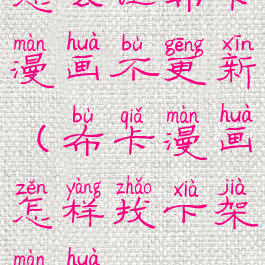 màn huà bù gēng xīn
漫画不更新
bù qiǎ màn huà
（布卡漫画
zěn yàng zhǎo xià jià
怎样找下架
màn huà